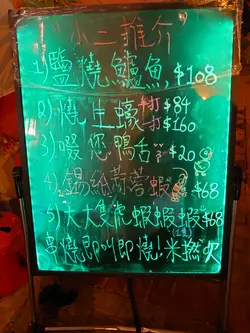 小二推介
1) 鹽燒鱸魚, $108
2) 燒生蠔 半打 $84
一打 $160
3) 啜您鴨舌 $20
4) 錫紙蒜蓉蝦 $68
5) 大大隻虎蝦蝦蝦 $68
串燒即叫即燒! 米撚吹